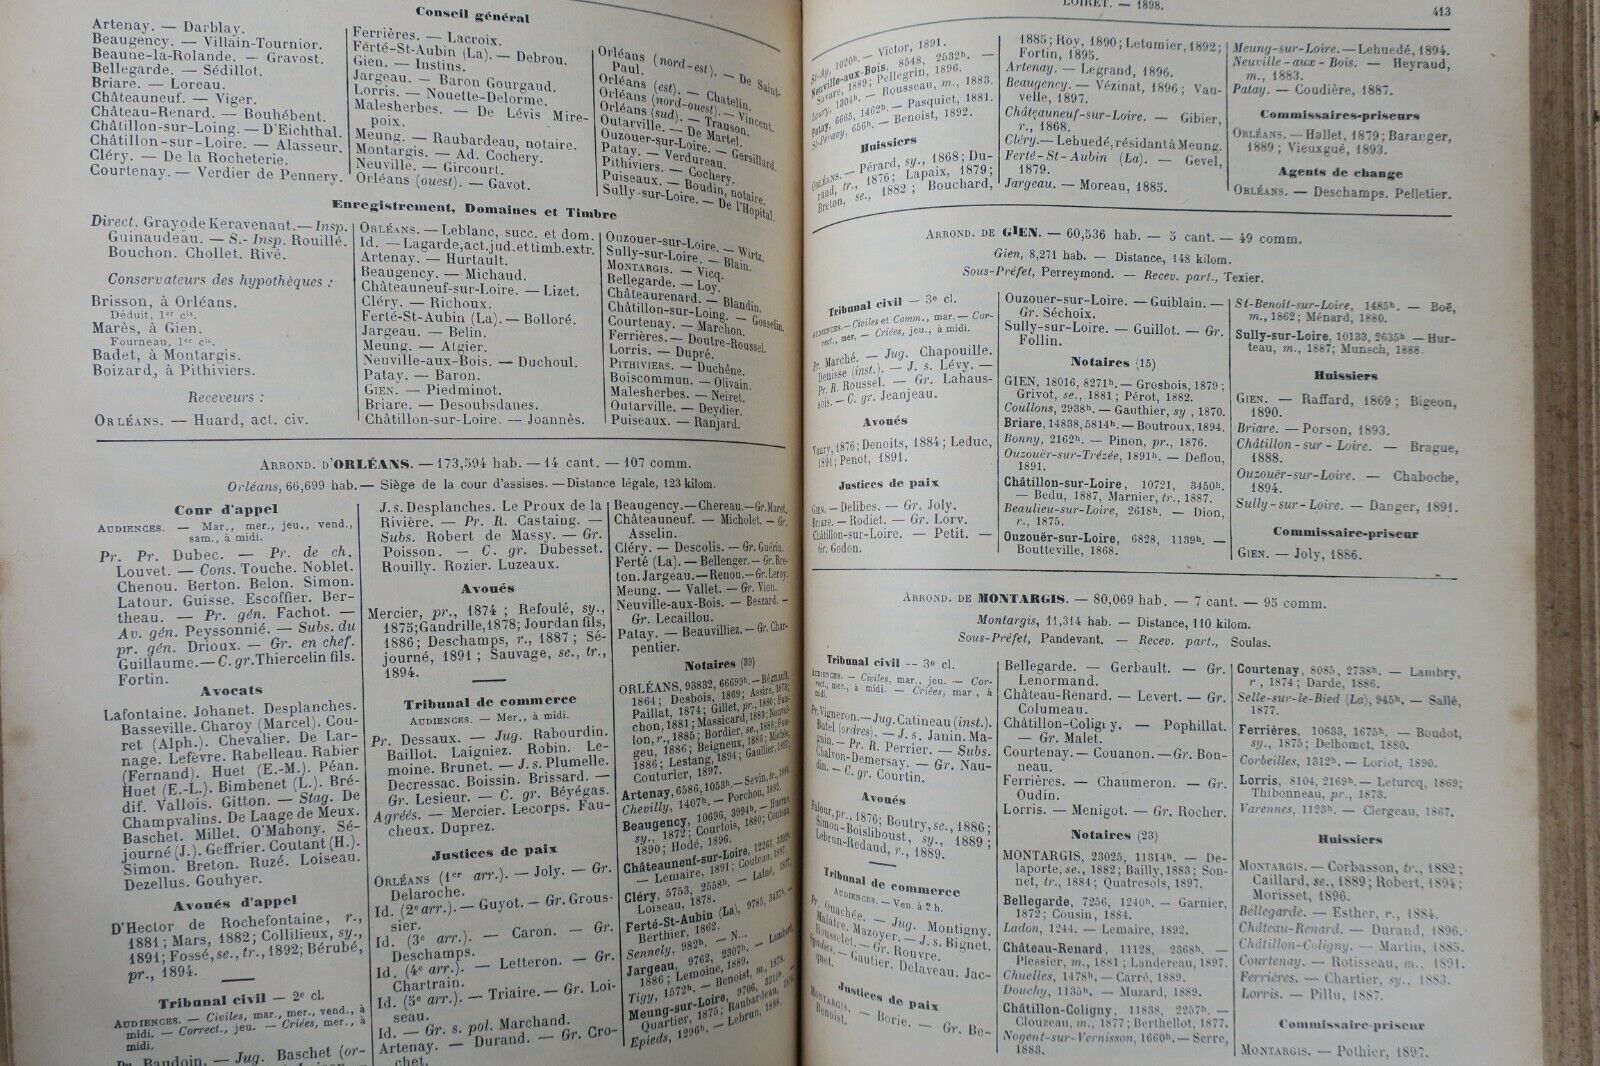 Conseil général
Artenay. — Darblay.
Beaugency. — Villain-Tournior.
Beaune-la-Rolande. — Gravost.
Bellegarde. — Sédillot.
Briare. — Loreau.
Châteauneuf. — Viger.
Château-Renard. — Bouhébent.
Châtillon-sur-Loing. — D'Eichthal.
Châtillon-sur-Loire. — Alasseur.
Cléry. — De la Rocheterie.
Courtenay. — Verdier de Pennery.
Ferrières. — Lacroix.
Ferté-St-Aubin (La). — Debrou.
Gien. — Instins.
Jargeau. — Baron Gourgaud.
Lorris. — Nouette-Delorme.
Malesherbes. — De Lévis Mire-
poix.
Meung. — Raubardeau, notaire.
Montargis. — Ad. Cochery.
Neuville. — Gircourt.
Orléans (ouest). — Gavot.
Orléans (nord-est). — De Saint-
Paul.
Orléans (est). — Chatelin.
Orléans (nord-ouest). — Vincent.
Orléans (sud). — Trauson.
Outarville. — De Martel.
Ouzouer-sur-Loire. — Gersillard.
Patay. — Verdureau.
Pithiviers. — Cochery.
Puiseaux. — Boudin, notaire.
Sully-sur-Loire. — De l'Hopital.
Enregistrement, Domaines et Timbre
Direct. Grayo de Keravenant. — Insp.
Guinaudeau. — S.-Insp. Rouillé.
Bouchon. Chollet. Rivé.
Conservateurs des hypothèques :
Brisson, à Orléans.
Déduit, 1er cis.
Marès, à Gien.
Fourneau, 1er cis.
Badet, à Montargis.
Boizard, à Pithiviers.
Receveurs :
ORLÉANS. — Huard, act. civ.
ORLÉANS. — Leblanc, succ. et dom.
Id. — Lagarde, act. jud. et timb. extr.
Artenay. — Hurtault.
Beaugency. — Michaud.
Châteauneuf-sur-Loire. — Lizet.
Cléry. — Richoux.
Ferté-St-Aubin (La). — Bolloré.
Jargeau. — Belin.
Meung. — Atgier.
Neuville-aux-Bois. — Duchoul.
Patay. — Baron.
GIEN. — Piedminot.
Briare. — Desoubsdanes.
Châtillon-sur-Loire. — Joannès.
Ouzouer-sur-Loire. — Wirtz.
Sully-sur-Loire. — Blain.
MONTARGIS. — Vicq.
Bellegarde. — Loy.
Châteaurenard. — Blandin.
Châtillon-sur-Loing. — Gosselin.
Courtenay. — Marchon.
Ferrières. — Doutre-Roussel.
Lorris. — Dupré.
PITHIVIERS. — Duchêne.
Boiscommun. — Olivain.
Malesherbes. — Neiret.
Outarville. — Deydier.
Puiseaux. — Ranjard.
ARROND. D'ORLÉANS. — 173,594 hab. — 14 cant. — 107 comm.
Orléans, 66,699 hab. — Siège de la cour d'assises. — Distance légale, 123 kilom.
Cour d'appel
AUDIENCES. — Mar., mer., jeu., vend.,
sam., à midi.
Pr. Pr. Dubec. — Pr. de ch.
Louvet. — Cons. Touche. Noblet.
Chenou. Berton. Belon. Simon.
Latour. Guisse. Escoffier. Ber-
theau. — Pr. gén. Fachot. —
Av. gén. Peyssonnié. — Subs. du
pr. gén. Drioux. — Gr. en chef.
Guillaume. — C. gr. Thiercelin fils.
Fortin.
Avocats
Lafontaine. Johanet. Desplanches.
Basseville. Charoy (Marcel). Cou-
ret (Alph.). Chevalier. De Lar-
nage. Lefèvre. Rabelleau. Rabier
(Fernand). Huet (E.-M.). Péan.
Huet (E.-L.). Bimbenet (L.). Bré-
dif. Vallois. Gitton. — Stag. De
Champvalins. De Laage de Meux.
Baschet. Millet. O'Mahony. Sé-
journé (J.). Geffrier. Coutant (H.).
Simon. Breton. Ruzé. Loiseau.
Dezellus. Gouhyer.
Avoués d'appel
D'Hector de Rochefontaine, r.,
1881; Mars, 1882; Collilieux, sy.,
1891; Fossé, se., tr., 1892; Bérubé,
pr., 1894.
Tribunal civil — 2e cl.
AUDIENCES. — Civiles, mar., mer., vend., à
midi. — Correct., jeu. — Criées, mer., à
midi.
Pr. Baudoin. — Jug. Baschet (or-
J. s. Desplanches. Le Proux de la
Rivière. — Pr. R. Castaing. —
Subs. Robert de Massy. — Gr.
Poisson. — C. gr. Dubesset.
Rouilly. Rozier. Luzeaux.
Avoués
Mercier, pr., 1874; Refoulé, sy.,
1875; Gandrille, 1878; Jourdan fils,
1886; Deschamps, r., 1887; Sé-
journé, 1891; Sauvage, se., tr.,
1894.
Tribunal de commerce
AUDIENCES. — Mer., à midi.
Pr. Dessaux. — Jug. Rabourdin.
Baillot. Laigniez. Robin. Le-
moine. Brunet. — J. s. Plumelle.
Decressac. Boissin. Brissard. —
Gr. Lesieur. — C. gr. Béyégas.
Agréés. — Mercier. Lecorps. Fau-
cheux. Duprez.
Justices de paix
ORLÉANS (1er arr.). — Joly. — Gr.
Delaroche.
Id. (2e arr.). — Guyot. — Gr. Grous-
sier.
Id. (3e arr.). — Caron. — Gr.
Deschamps.
Id. (4e arr.). — Letteron. — Gr.
Chartrain.
Id. (5e arr.). — Triaire. — Gr. Loi-
seau.
Id. — Gr. s. pol. Marchand.
Artenay. — Durand. — Gr. Cro-
chet.
Beaugency. — Chereau. — Gr. Maret.
Châteauneuf. — Micholet. — Gr.
Asselin.
Cléry. — Descolis. — Gr. Guérin.
Ferté (La). — Bellenger. — Gr. Bre-
ton. Jargeau. — Renou. — Gr. Leroy.
Meung. — Vallet. — Gr. Vion.
Neuville-aux-Bois. — Beszard. —
Gr. Lecaillou.
Patay. — Beauvilliez. — Gr. Char-
pentier.
Notaires (39)
ORLÉANS, 93832, 66699h. — Régnault,
1864; Desbois, 1869; Assire, 1873;
Paillat, 1874; Gillet, pr., 1880; Fau-
chon, 1881; Massicard, 1883; Nouvel-
lon, r., 1885; Bordier, se., 1886; Fou-
geu, 1886; Beigneux, 1886; Michée,
1886; Lestang, 1894; Gaullier, 1897;
Couturier, 1897.
Artenay, 6586, 1053h. — Sevin, tr., 1888.
Chevilly, 1407h. — Porchon, 1882.
Beaugency, 10696, 3994h. —
sy., 1872; Courtois, 1880;
1890; Hodé, 1896.
Châteauneuf-sur-Loire, 12261,
— Lemaire, 1891; Couteau, 1897.
Cléry, 5753, 2558h. — Lalué, 1877.
Loiseau, 1878.
Ferté-St-Aubin (La), 9785,
Berthier, 1862.
Sennely, 982h. — N...
Jargeau, 9762, 2307h. — Lambert,
1886; Lemoine, 1889.
Tigy, 1572h. — Benoist, m., 1878.
Meung-sur-Loire, 9706, 3210h. —
Quartier, 1875; Raubardeau,
Epieds, 1296h. — Lebrun, 1888.
LOIRET. — 1898.
413
St-Ay, 1020h. — Victor, 1891.
Neuville-aux-Bois, 8548, 2532h. —
Savare, 1889; Pellegrin, 1896.
Loury, 1304h. — Rousseau, m., 1883.
Patay, 6665, 1462h. — Pasquiet, 1881.
St-Péravy, 656h. — Benoist, 1892.
Huissiers
ORLÉANS. — Pérard, sy., 1868; Du-
rand, tr., 1876; Lapaix, 1879;
Breton, se., 1882; Bouchard,
1885; Roy, 1890; Letumier, 1892;
Fortin, 1895.
Artenay. — Legrand, 1896.
Beaugency. — Vézinat, 1896; Vau-
velle, 1897.
Châteauneuf-sur-Loire. — Gibier,
r., 1868.
Cléry. — Lehuedé, résidant à Meung.
Ferté-St-Aubin (La). — Gevel,
1879.
Jargeau. — Moreau, 1885.
Meung-sur-Loire. — Lehuedé, 1894.
Neuville-aux-Bois. — Heyraud,
m., 1883.
Patay. — Coudière, 1887.
Commissaires-priseurs
ORLÉANS. — Hallet, 1879; Baranger,
1889; Vieuxgué, 1893.
Agents de change
ORLÉANS. — Deschamps. Pelletier.
ARROND. DE GIEN. — 60,536 hab. — 5 cant. — 49 comm.
Gien, 8,271 hab. — Distance, 148 kilom.
Sous-Préfet, Perreymond. — Recev. part., Texier.
Tribunal civil — 3e cl.
AUDIENCES. — Civiles et Comm., mar. — Cor-
rect., mer. — Criées, jeu., à midi.
Pr. Marché. — Jug. Chapouille.
Denisse (inst.). — J. s. Lévy. —
Pr. R. Roussel. — Gr. Lahaus-
sois. — C. gr. Jeanjeau.
Avoués
Vaury, 1876; Denoits, 1884; Leduc,
1891; Penot, 1891.
Justices de paix
GIEN. — Delibes. — Gr. Joly.
Briare. — Rodiet. — Gr. Lorv.
Châtillon-sur-Loire. — Petit. —
Gr. Godon.
Ouzouer-sur-Loire. — Guiblain. —
Gr. Séchoix.
Sully-sur-Loire. — Guillot. — Gr.
Follin.
Notaires (15)
GIEN, 18016, 8271h. — Grosbois, 1879;
Grivot, se., 1881; Pérot, 1882.
Coullons, 2938h. — Gauthier, sy., 1870.
Briare, 14838, 5814h. — Boutroux, 1894.
Bonny, 2162h. — Pinon, pr., 1876.
Ouzouër-sur-Trézée, 1891h. — Deflou,
1891.
Châtillon-sur-Loire, 10721, 3450h.
— Bedu, 1887, Marnier, tr., 1887.
Beaulieu-sur-Loire, 2618h. — Dion,
r., 1875.
Ouzouër-sur-Loire, 6828, 1139h. —
Boutteville, 1868.
St-Benoît-sur-Loire, 1485h. — Boë,
m., 1862; Ménard, 1880.
Sully-sur-Loire, 10133, 2635h. — Hur-
teau, m., 1887; Munsch, 1888.
Huissiers
GIEN. — Raffard, 1869; Bigeon,
1890.
Briare. — Porson, 1893.
Châtillon-sur-Loire. — Brague,
1888.
Ouzouër-sur-Loire. — Chaboche,
1894.
Sully-sur-Loire. — Danger, 1891.
Commissaire-priseur
GIEN. — Joly, 1886.
ARROND. DE MONTARGIS. — 80,069 hab. — 7 cant. — 95 comm.
Montargis, 11,314 hab. — Distance, 110 kilom.
Sous-Préfet, Pandevant. — Recev. part., Soulas.
Tribunal civil — 3e cl.
AUDIENCES. — Civiles, mar., jeu. — Cor-
rect., mer., à midi. — Criées, mar., à
midi.
Pr. Vigneron. — Jug. Catineau (inst.).
Butel (ordres). — J. s. Janin. Ma-
gnin. — Pr. R. Perrier. — Subs.
Chalvon-Demersay. — Gr. Nau-
din. — C. gr. Courtin.
Avoués
Falour, pr., 1876; Boutry, se., 1886;
Simon-Boisliboust, sy., 1889;
Lebrun-Redaud, r., 1889.
Tribunal de commerce
AUDIENCES. — Ven. à 2 h.
Pr. Ouachée. — Jug. Montigny.
Malâtre. Mazoyer. — J. s. Bignet.
Rousselet. — Gr. Rouvre.
Syndics. — Gautier. Delaveau. Jac-
quet.
Justices de paix
MONTARGIS. — Borie. — Gr. Be-
noist.
Bellegarde. — Gerbault. — Gr.
Lenormand.
Château-Renard. — Levert. — Gr.
Columeau.
Châtillon-Coligny. — Pophillat.
— Gr. Malet.
Courtenay. — Couanon. — Gr. Bon-
neau.
Ferrières. — Chaumeron. — Gr.
Oudin.
Lorris. — Menigot. — Gr. Rocher.
Notaires (23)
MONTARGIS, 23025, 11314h. — De-
laporte, se., 1882; Bailly, 1883; Son-
net, tr., 1884; Quatresols, 1897.
Bellegarde, 7256, 1240h. — Garnier,
1872; Cousin, 1884.
Ladon, 1244. — Lemaire, 1892.
Château-Renard, 11128, 2368h. —
Plessier, m., 1881; Landereau, 1897.
Chuelles, 1478h. — Carré, 1889.
Douchy, 1135h. — Muzard, 1889.
Châtillon-Coligny, 11838, 2257h. —
Clouzeau, m., 1877; Berthellot, 1877.
Nogent-sur-Vernisson, 1660h. — Serre,
1883.
Courtenay, 8085, 2738h. — Lambry,
r., 1874; Darde, 1886.
Selle-sur-le-Bied (La), 945h. — Sallé,
1877.
Ferrières, 10633, 1675h. — Boudot,
sy., 1875; Delhomet, 1880.
Corbeilles, 1312h. — Loriot, 1890.
Lorris, 8104, 2169h. — Leturcq, 1869;
Thibonneau, pr., 1873.
Varennes, 1123h. — Clergeau, 1867.
Huissiers
MONTARGIS. — Corbasson, tr., 1882;
Caillard, se., 1889; Robert, 1894;
Morisset, 1896.
Bellegarde. — Esther, r., 1884.
Château-Renard. — Durand, 1896.
Châtillon-Coligny. — Martin, 1885.
Courtenay. — Rotisseau, m., 1891.
Ferrières. — Chartier, sy., 1883.
Lorris. — Pillu, 1887.
Commissaire-priseur
MONTARGIS. — Pothier, 1897.